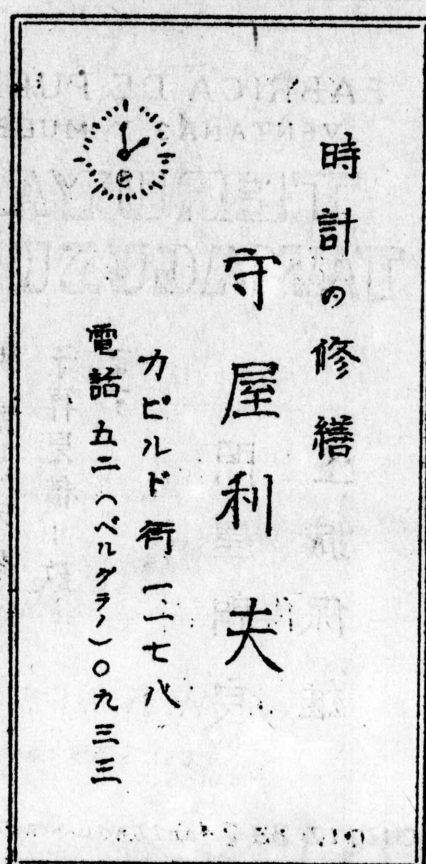 時計の修繕
守屋利夫
カピルド街一一七八
電話五二(ベルグラノ)〇九三三